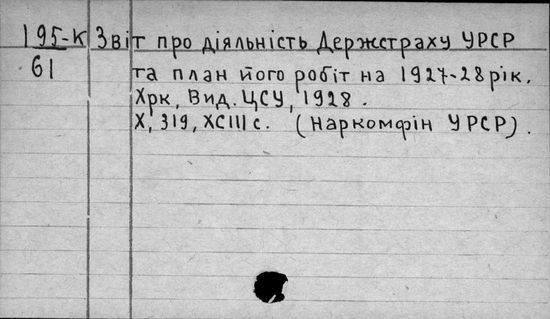 195-К Звіт про діяльність Держстраху УРСР
61 та план його робіт на 1927-28 рік.
Хрк, Вид. ЦСУ, 1928.
X, 319, XCIII с. (Наркомфін УРСР).